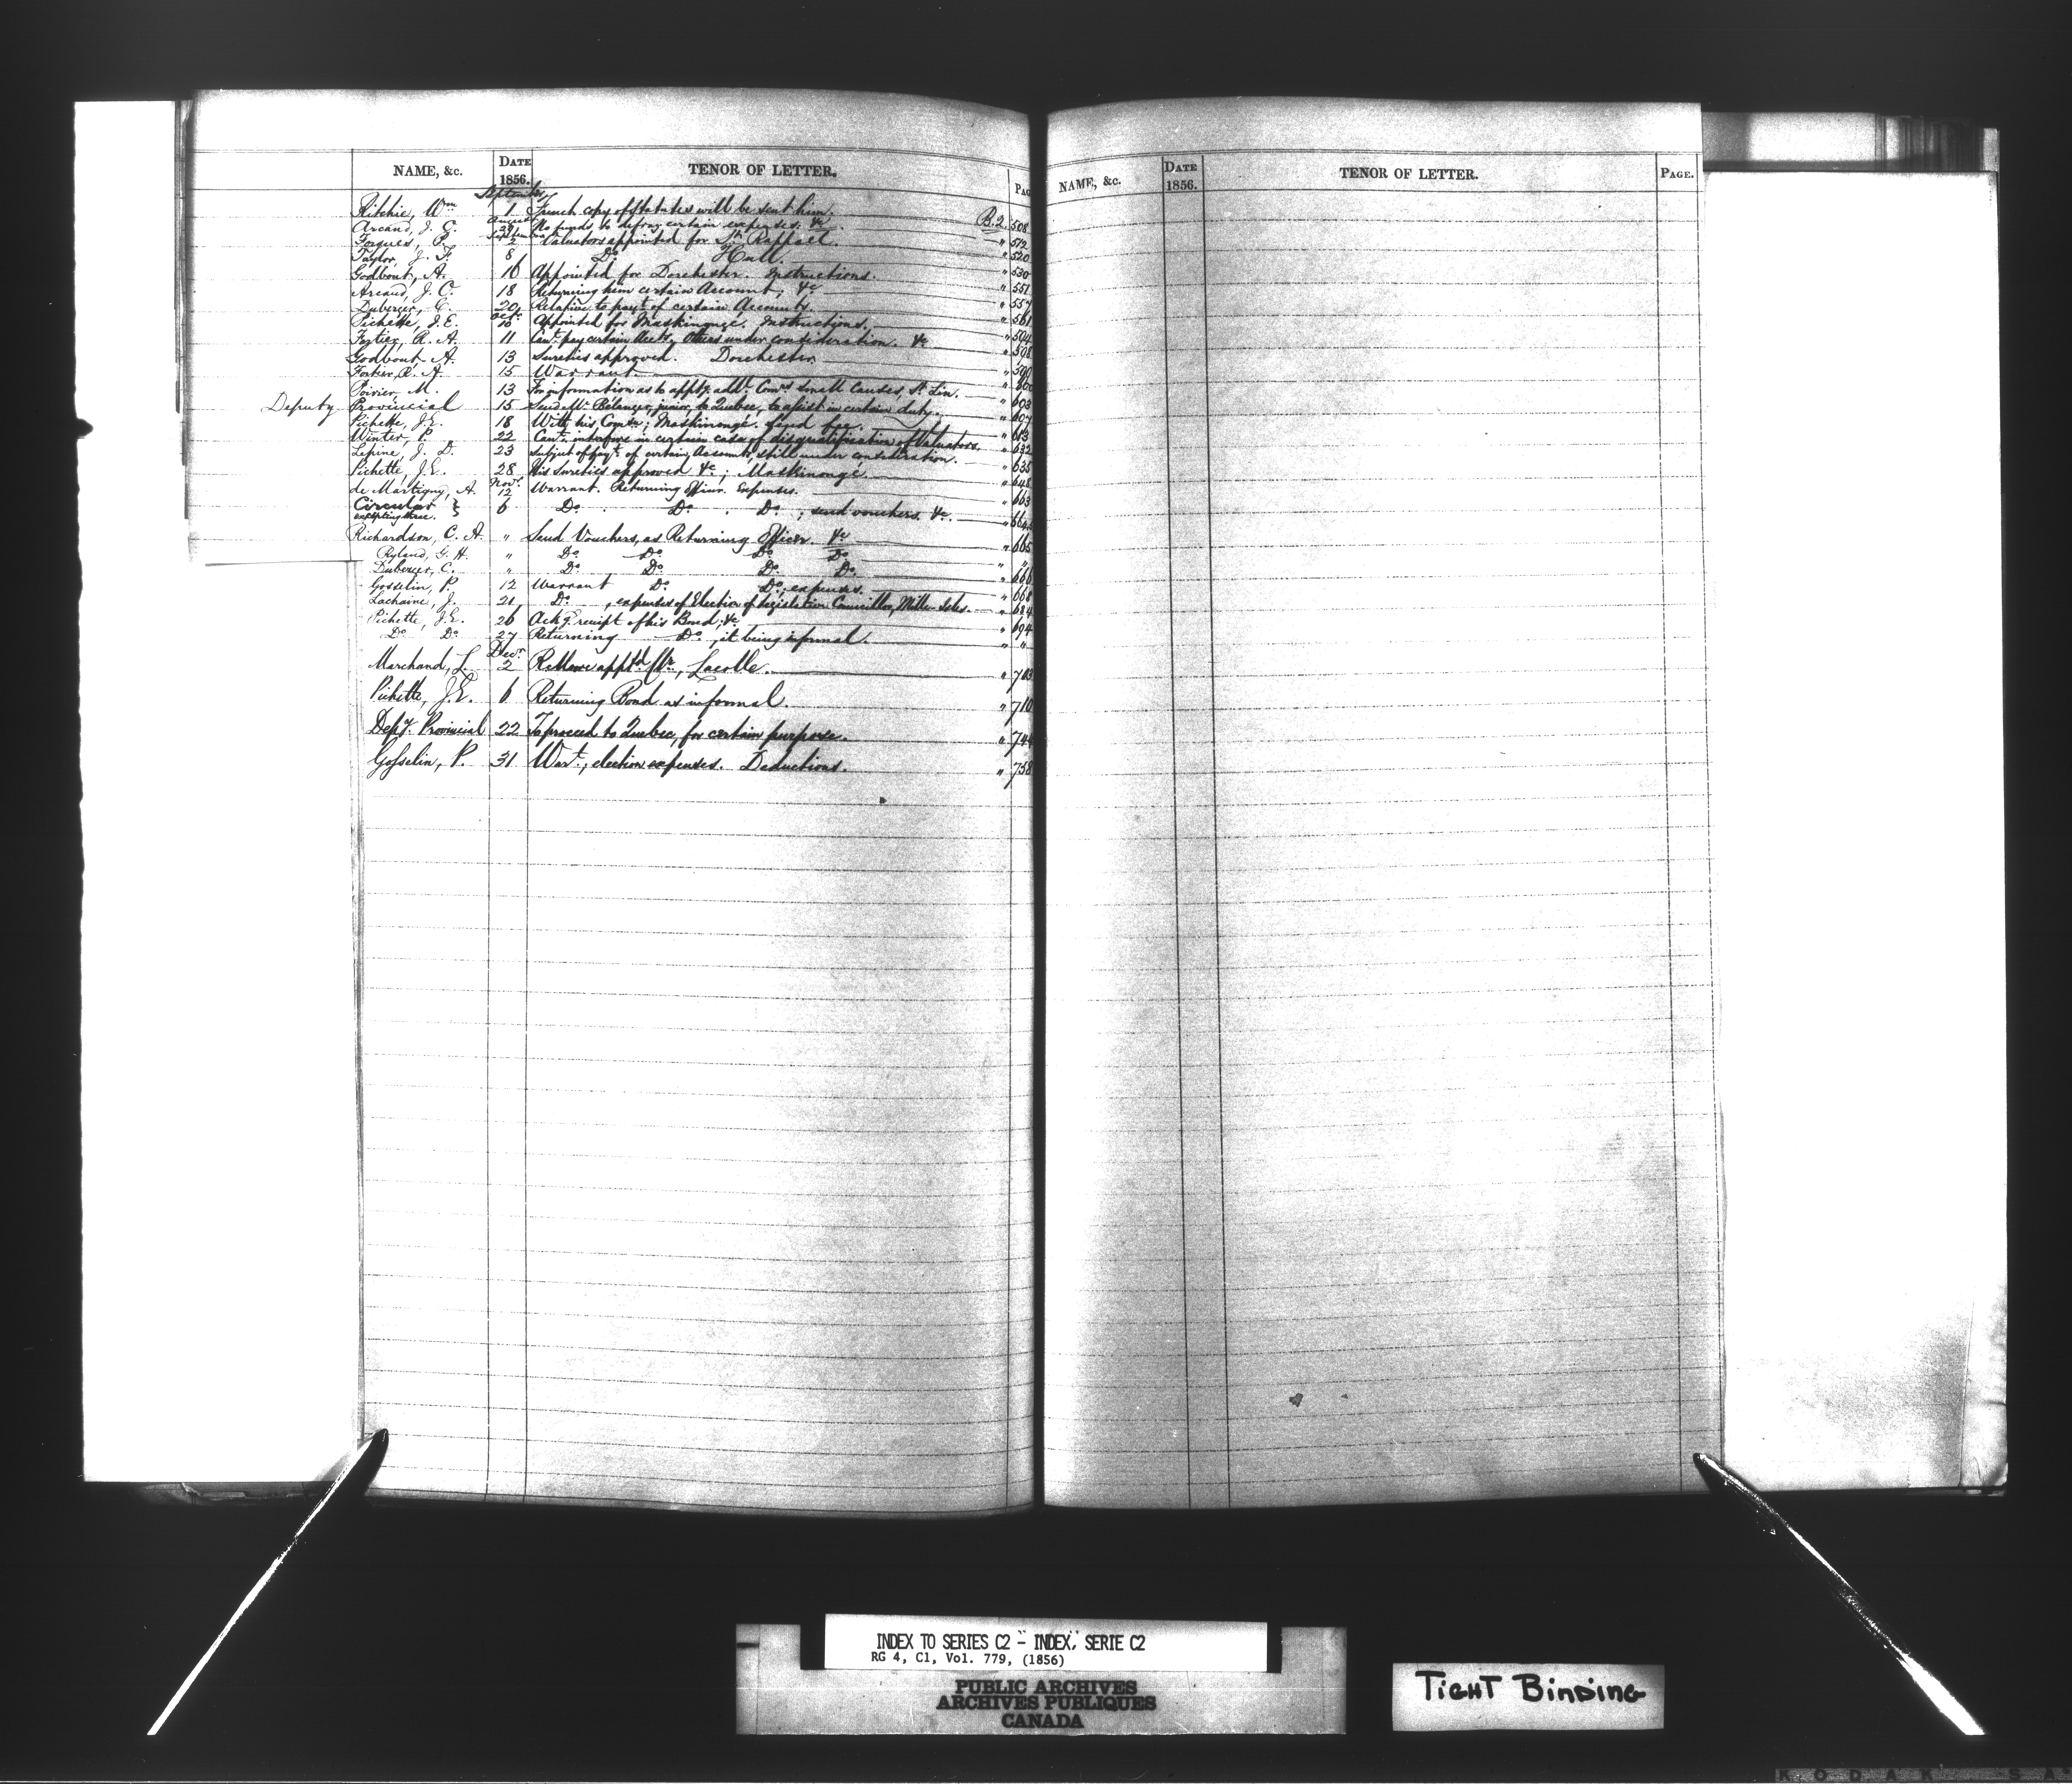 NAME, &c. DATE 1856. TENOR OF LETTER. PAG
September
Ritchie, Wm 1 French copy of Statutes will be sent him. B.2. 508
August
Arcand, J. O. 29 No funds to defray certain expenses; &c. " 512
September
Forgues, P. 2 Valuators appointed for St. Raphael. " 520
Taylor, J. F. 8 Do. Hull. " 530
Godbout, A. 16 Appointed for Dorchester. Instructions. " 551
Arcand, J. O. 18 Returning him certain Account, &c " 557
Duberger, C. 20 Relative to payt. of certain Accounts. " 561
Octr.
Pichette, J. E. 10 Appointed for Maskinongé. Instructions. " 594
Fortier, R. A. 11 Cant. pay certain Accts. Others under consideration. &c " 598
Godbout A. 13 Sureties approved. Dorchester "
Fortier, R. A. 15 Warrant. "
Poirier, M. 13 For information as to apptg. addl. Comrs Small Causes, St. Lin. " 603
Deputy Provincial 15 Send Mr. Bélanger, junior, to Quebec, to assist in certain duty. " 607
Pichette, J. E. 18 With his Comn.; Maskinongé. Send fee. " 613
Winter, P. 22 Cant. interfere in certain case of disqualification of Valuators. " 632
Lepine, J. D. 23 Subject of payt. of certain Accounts, still under consideration. " 635
Pichette, J. E. 28 His sureties approved &c; Maskinongé. " 648
Novr.
de Martigny, A. 12 Warrant. Returning Officer. Expenses. " 663
Circular } 6 Do. Do. Do. ; send vouchers. &c. " 664
excepting three.
Richardson, C. A. " Send Vouchers, as Returning Officer. &c " 665
Ryland, G. H. " Do. Do. Do. Do. " "
Duberger, C. " Do. Do. Do. Do. " 666
Gosselin, P. 12 Warrant Do. Do., expenses. " 668
Lachaine, J. 21 Do. , expenses of Election of Legislative Councillor, Mille-Isles. " 684
Pichette, J. E. 26 Ackg. receipt of his Bond; &c " 694
Do. Do. 27 Returning Do., it being informal. " "
Decr.
Marchand, L. 2 apptd. , Lacolle. " 703
Pichette, J. E. 6 Returning Bond as informal. " 710
Depy. Provincial 22 To proceed to Quebec, for certain purpose. " 744
Gosselin, P. 31 Wart., election expenses. Deductions. " 758
NAME, &c. DATE 1856. TENOR OF LETTER. PAGE.
INDEX TO SERIES C2 - INDEX, SERIE C2
RG 4, C1, Vol. 779, (1856)
PUBLIC ARCHIVES
ARCHIVES PUBLIQUES
CANADA
TIGHT BINDING
KODAK SA